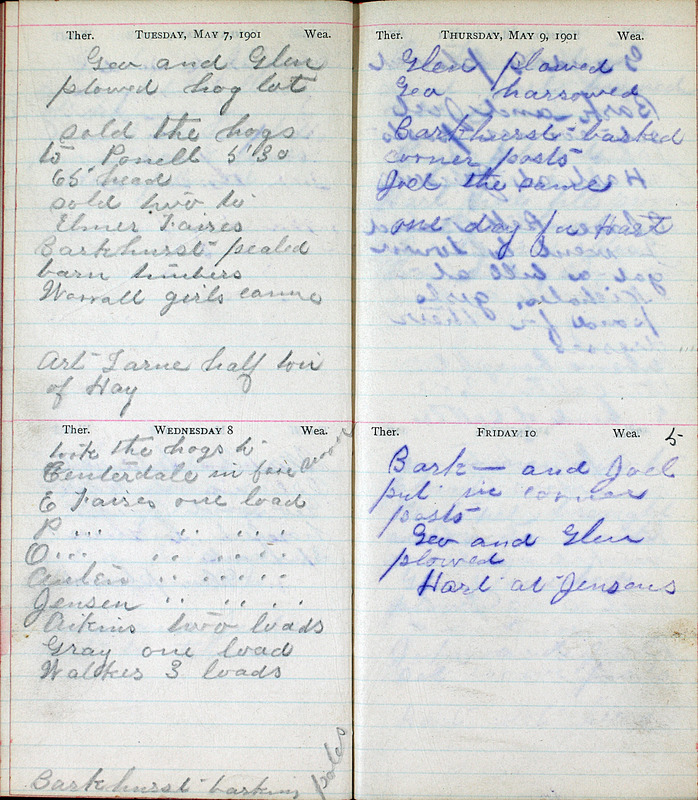 Ther. TUESDAY, MAY 7, 1901 Wea.
Geo and Glen
plowed hog lot
sold the hogs
to Ponell 5.30
65 head
sold two to
Elmer Faires
Barkhurst pealed
barn timbers
Worrall girls came
Art Larue half ton
of Hay
Ther. WEDNESDAY 8 Wea.
took the hogs to
Centerdale in four
E Faires one load
P ... .. .. ...
O... .. .. ...
.. .. ...
Jensen .. .. ...
Aikins two loads
Gray one load
Walkes 3 loads
Barkhurst barking poles
Ther. THURSDAY, MAY 9, 1901 Wea.
Glen plowed
Geo harrowed
Barkhurst barked
corner posts
Joel the same
one day for Hart
Ther. FRIDAY 10 Wea. 5
Bark— and Joel
put in corner
posts
Geo and Glen
plowed
Hart at Jensens